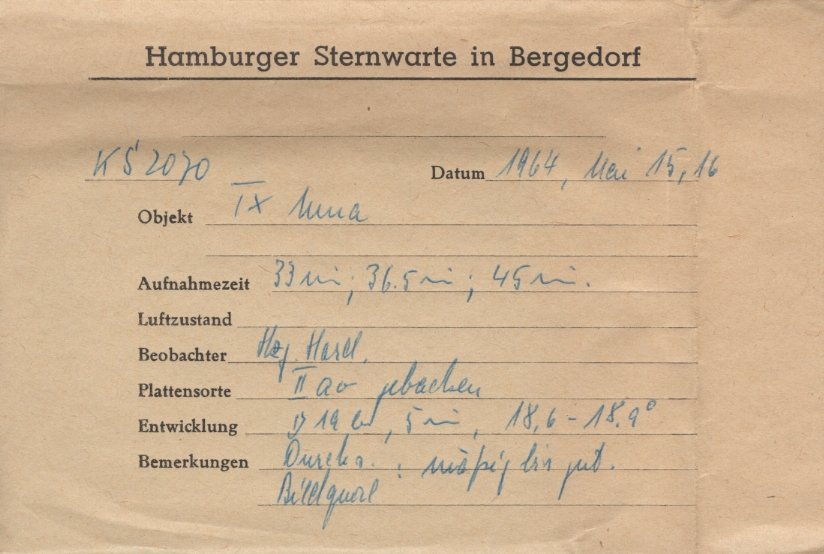 Hamburger Sternwarte in Bergedorf
KS 2070 Datum 1964, Mai 15, 16
Objekt IX
Aufnahmezeit 33 min; 36.5 min; 45 min.
Luftzustand
Beobachter
Plattensorte II ao gebacken
Entwicklung D 19 b, 5 min, 18,6 - 18.9°
Bemerkungen Durchs. : mäßig bis gut.
Bildqual